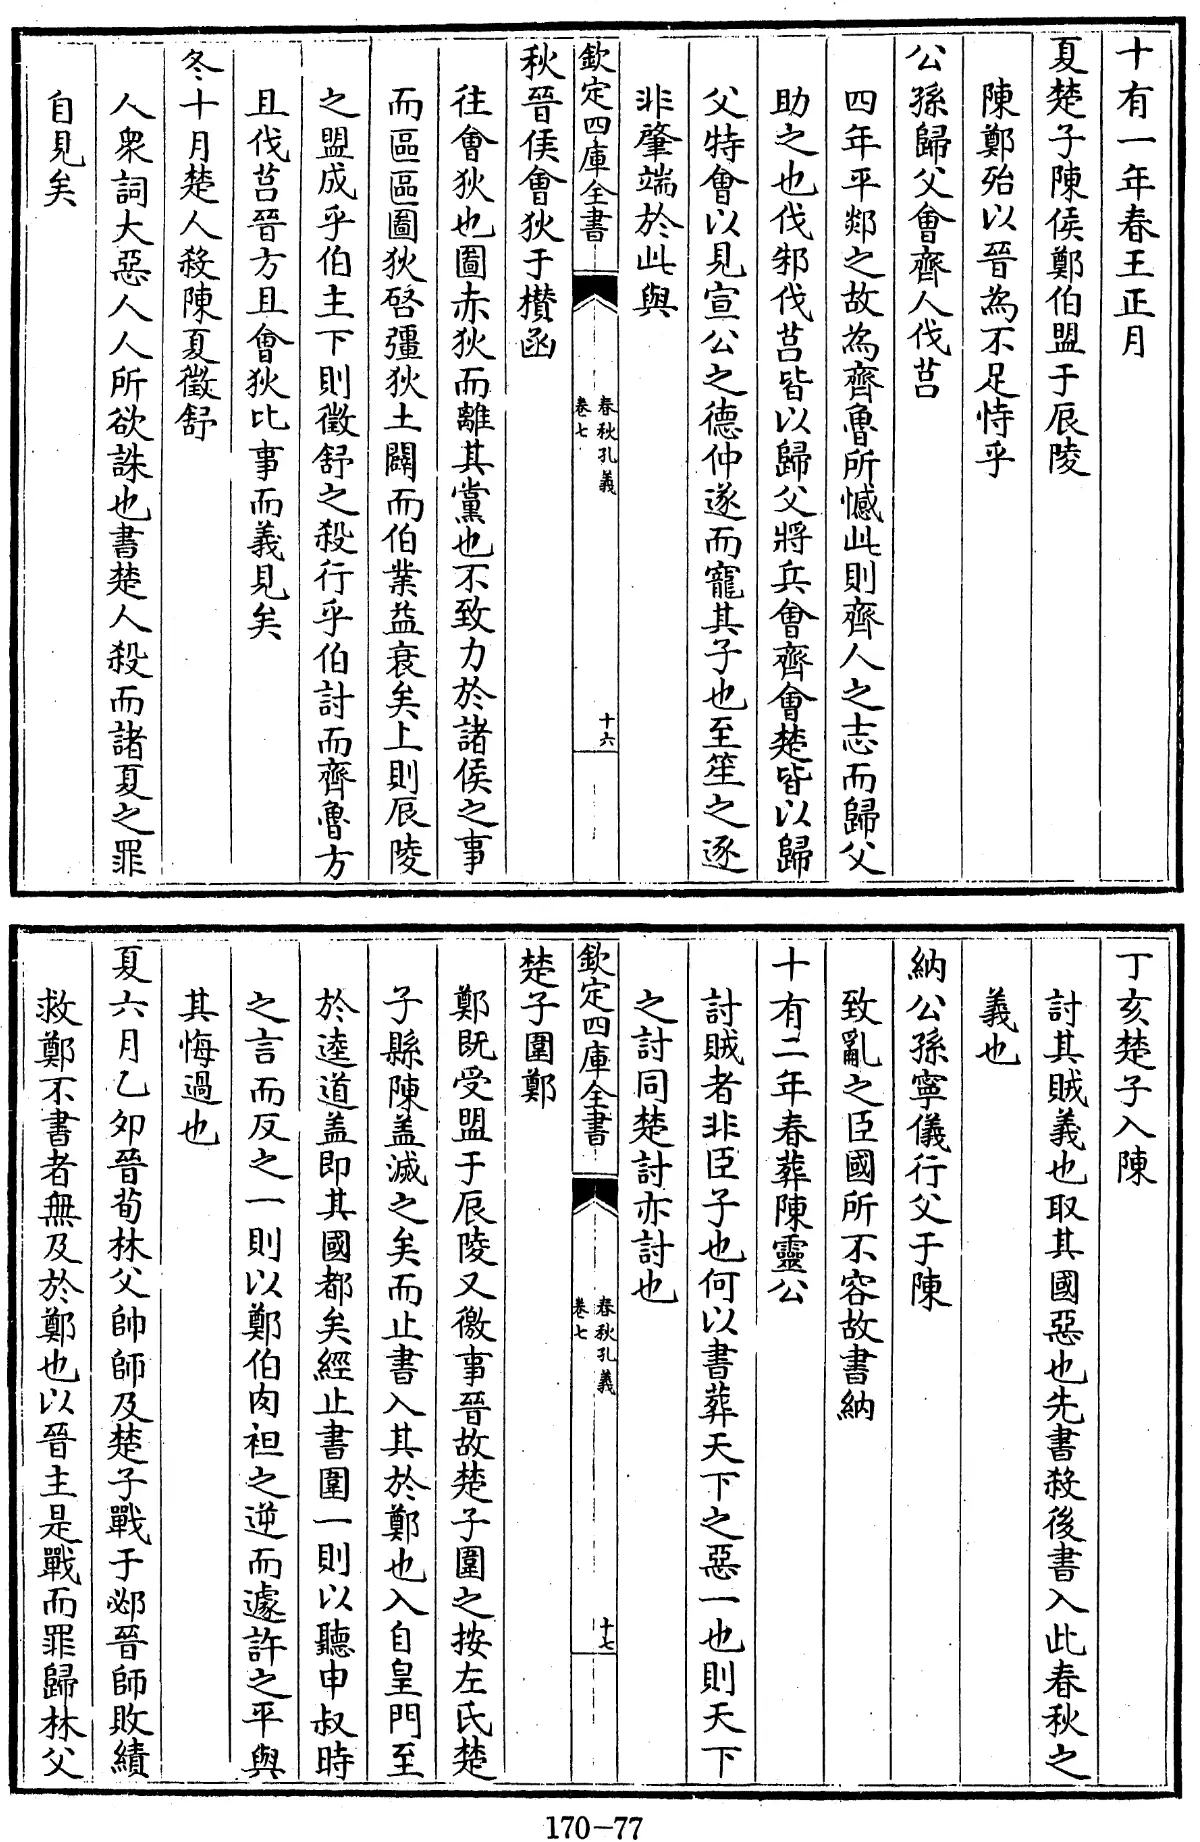 十有一年春王正月
夏楚子陳侯鄭伯盟于辰陵
陳鄭殆以晉為不足恃乎
公孫歸父會齊人伐莒
四年平郯之故為齊魯所憾此則齊人之志而歸父
助之也伐邾伐莒皆以歸父將兵會齊會楚皆以歸
父特會以見宣公之德仲遂而寵其子也至笙之逐
非肇端於此與
欽定四庫全書
春秋孔義
卷七
十六
秋晉侯會狄于欑函
往會狄也圖赤狄而離其黨也不致力於諸侯之事
而區區圖狄啓彊狄土闢而伯業益衰矣上則辰陵
之盟成乎伯主下則徵舒之殺行乎伯討而齊魯方
且伐莒晉方且會狄比事而義見矣
冬十月楚人殺陳夏徵舒
人衆詞大惡人人所欲誅也書楚人殺而諸夏之罪
自見矣
丁亥楚子入陳
討其賊義也取其國惡也先書殺後書入此春秋之
義也
納公孫寧儀行父于陳
致亂之臣國所不容故書納
十有二年春葬陳靈公
討賊者非臣子也何以書葬天下之惡一也則天下
之討同楚討亦討也
欽定四庫全書
春秋孔義
卷七
十七
楚子圍鄭
鄭既受盟于辰陵又徼事晉故楚子圍之按左氏楚
子縣陳盖滅之矣而止書入其於鄭也入自皇門至
於逵道盖即其國都矣經止書圍一則以聽申叔時
之言而反之一則以鄭伯肉袒之逆而遽許之平與
其悔過也
夏六月乙夘晉荀林父帥師及楚子戰于邲晉師敗績
救鄭不書者無及於鄭也以晉主是戰而罪歸林父
170-77